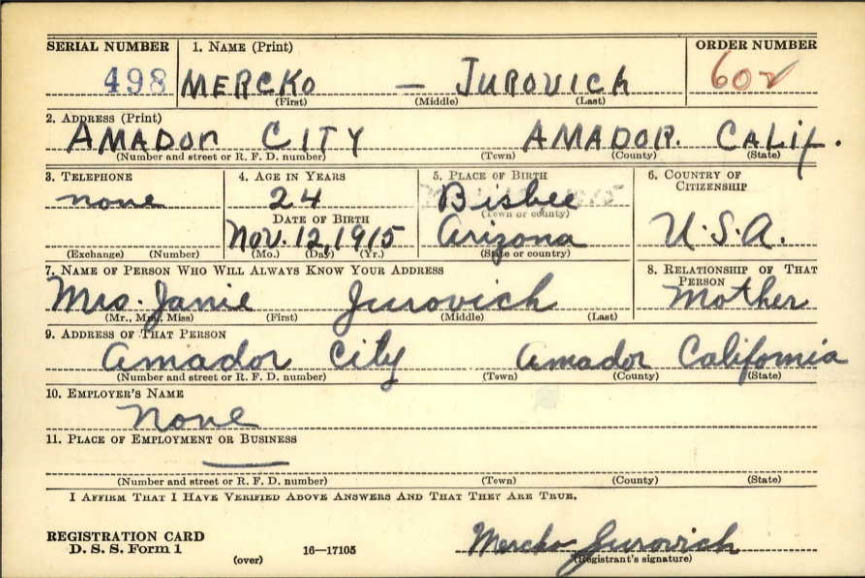 SERIAL NUMBER 1. NAME (Print) ORDER NUMBER
498 MERCKO — JUROVICH 602
(First) (Middle) (Last)
2. ADDRESS (Print)
AMADOR CITY AMADOR. CALIF.
(Number and street or R. F. D. number) (Town) (County) (State)
3. TELEPHONE 4. AGE IN YEARS 5. PLACE OF BIRTH 6. COUNTRY OF CITIZENSHIP
none 24 Bisbee
DATE OF BIRTH (Town or county)
Nov. 12, 1915 Arizona U.S.A.
(Exchange) (Number) (Mo.) (Day) (Yr.) (State or country)
7. NAME OF PERSON WHO WILL ALWAYS KNOW YOUR ADDRESS 8. RELATIONSHIP OF THAT PERSON
Mrs. Janie Jurovich Mother
(Mr., Mrs., Miss) (First) (Middle) (Last)
9. ADDRESS OF THAT PERSON
Amador City Amador California
(Number and street or R. F. D. number) (Town) (County) (State)
10. EMPLOYER'S NAME
None
11. PLACE OF EMPLOYMENT OR BUSINESS
—
(Number and street or R. F. D. number) (Town) (County) (State)
I AFFIRM THAT I HAVE VERIFIED ABOVE ANSWERS AND THAT THEY ARE TRUE.
REGISTRATION CARD
D. S. S. Form 1 (over) 16—17105 Mercko Jurovich
(Registrant's signature)